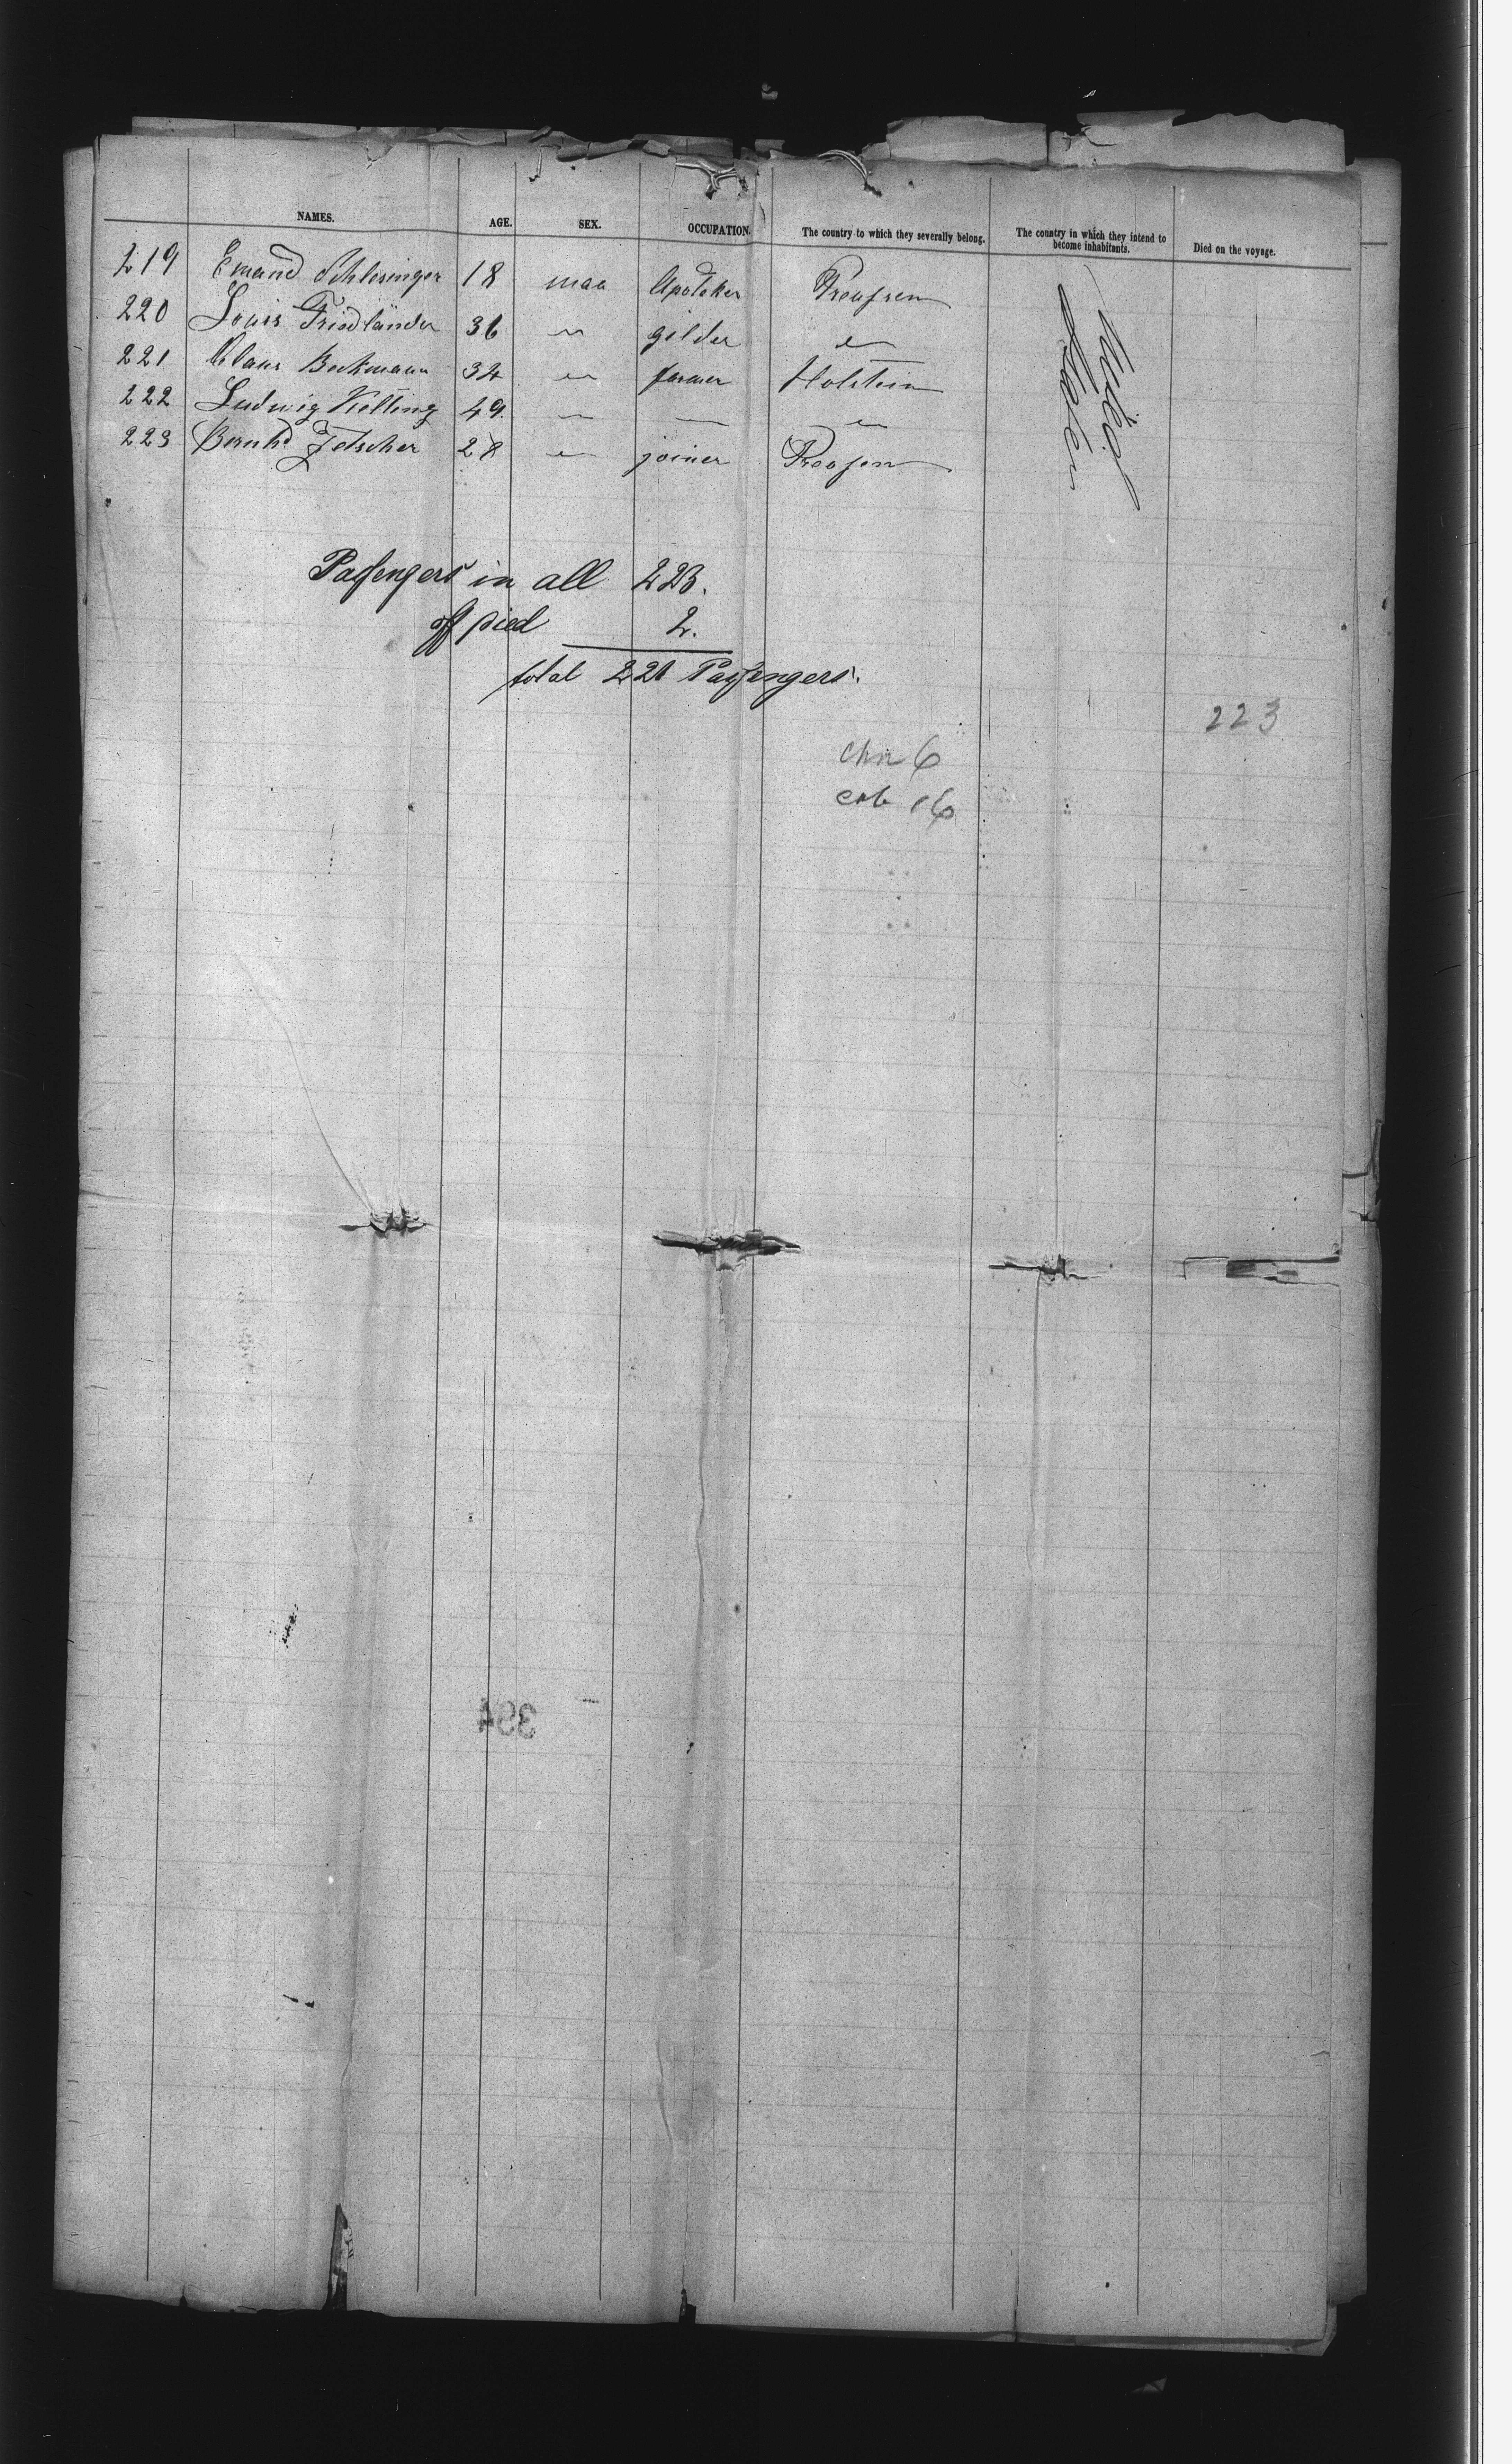 NAMES. AGE. SEX. OCCUPATION. The country to which they severally belong. The country in which they intend to become inhabitants. Died on the voyage.
219 Emand Schlesinger 18 maa Apoteker Preussen
220 Louis Friedländer 36 " gilder "
221 Claus Beckmann 34 " farmer Holstein
222 Ludwig Kelling 49. " — "
223 Bernhd Fetscher 28 " joiner Preussen
United Staten
Passengers in all 223.
off died 2.
total 221 Passengers.
223
chn 6
cab 16
394